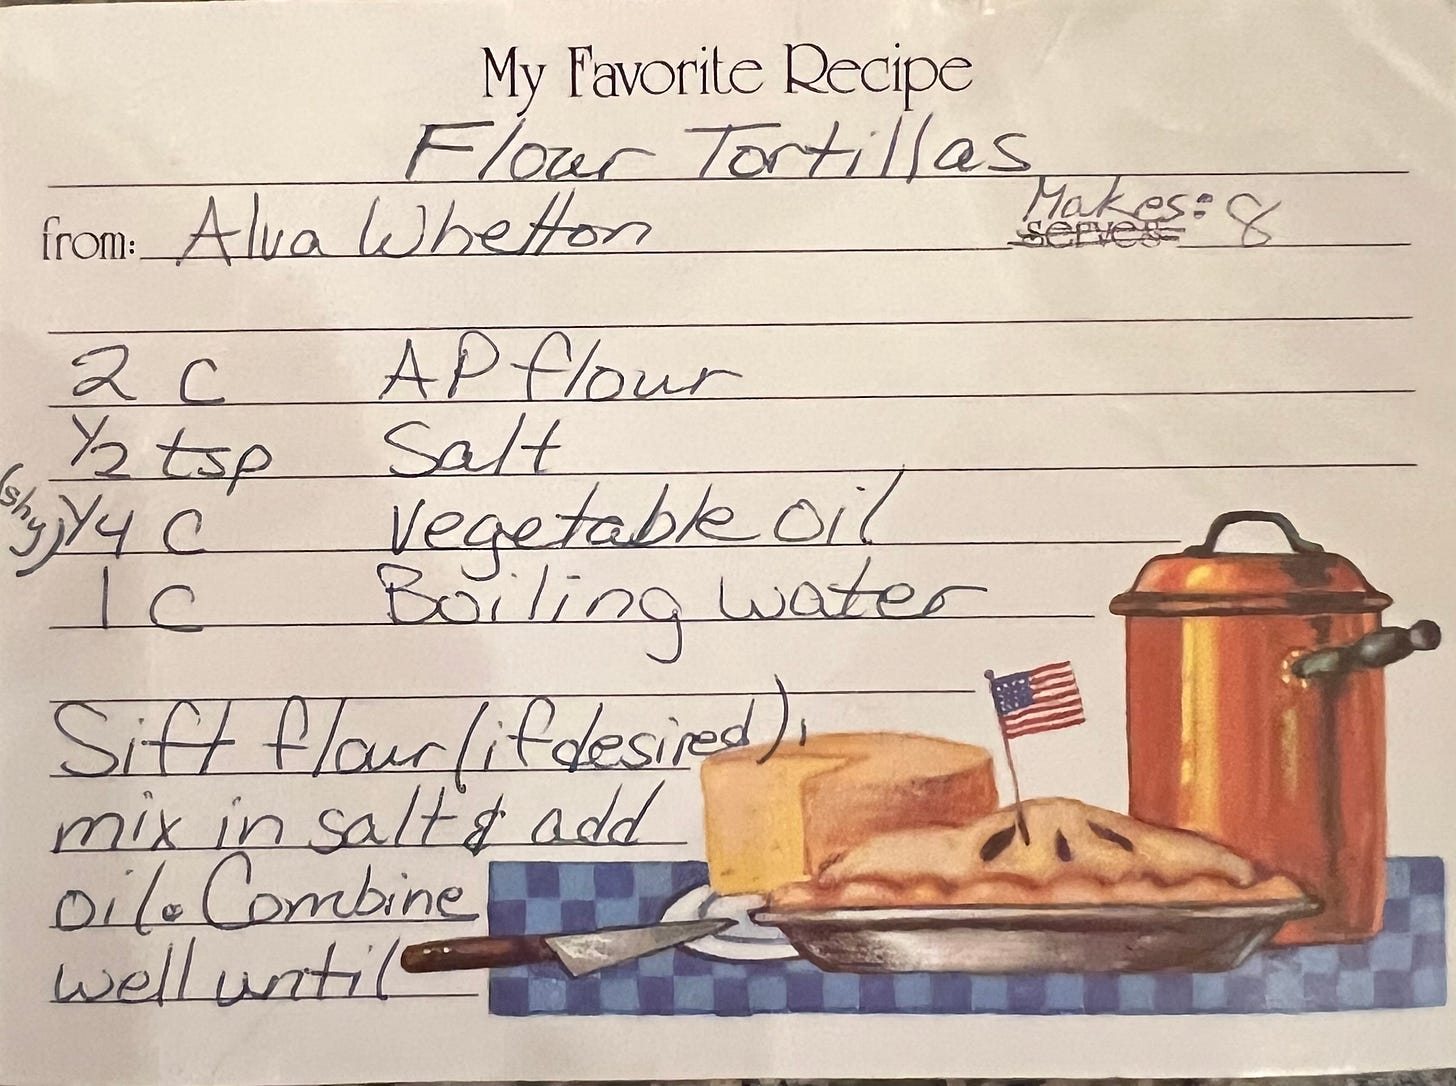 My Favorite Recipe
Flour Tortillas
from: Alva Whetton
Makes: 8
serves
2 c AP flour
1/2 tsp Salt
(shy) 1/4 c vegetable oil
1 c Boiling water
Sift flour (if desired),
mix in salt & add
oil. Combine
well until